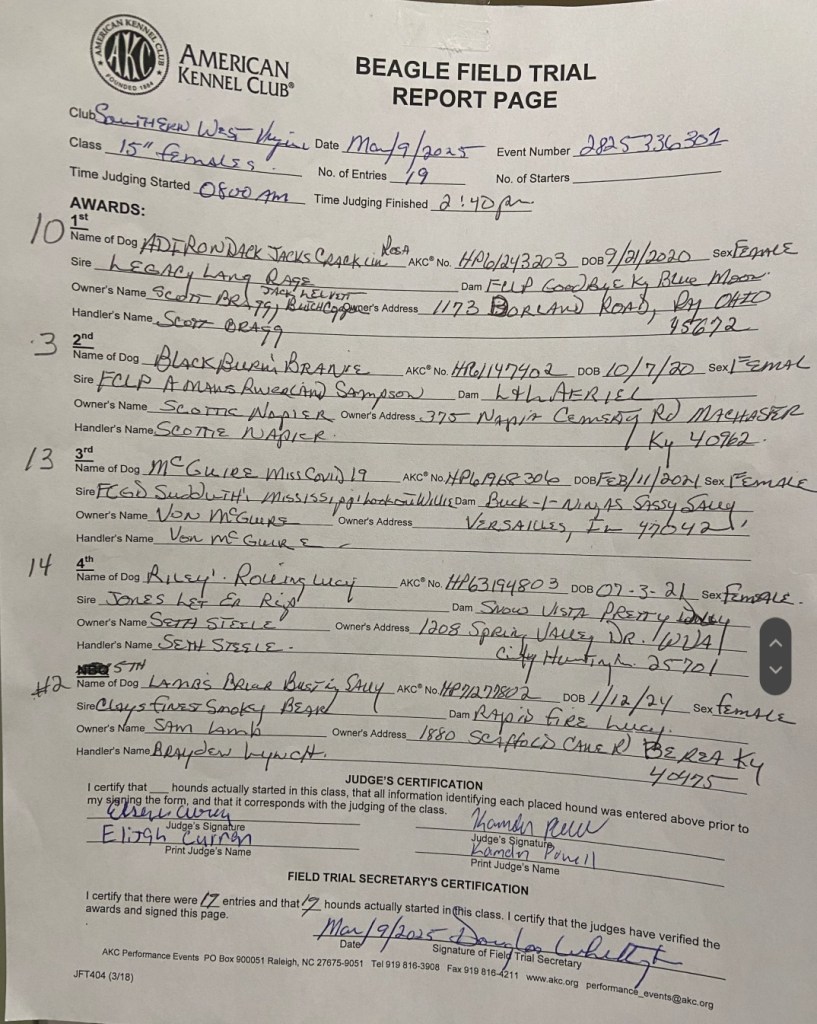 AMERICAN KENNEL CLUB
AKC
FOUNDED 1884
AMERICAN
KENNEL CLUB®
BEAGLE FIELD TRIAL
REPORT PAGE
Club SOUTHERN WEST Virginia Date Mar/9/2025 Event Number 2825336301
Class 15" females. No. of Entries 19 No. of Starters
Time Judging Started 0800 AM Time Judging Finished 2:40 pm
AWARDS:
10 1st
Name of Dog ADIRONDACK JACKS CRACKLIN ROSA AKC® No. HP61243203 DOB 9/21/2020 Sex FEMALE
Sire LEGACY LANA RAGE Dam FCLP Goodbye Ky Blue Moon
Owner's Name SCOTT BRAGG, JACK Owner's Address 1173 DORLAND ROAD, RAY OHIO
Handler's Name SCOTT BRAGG 45672
3 2nd
Name of Dog BLACKBURN'S AKC® No. HP61147402 DOB 10/7/20 Sex FEMAL
Sire FCLP SAMPSON Dam L&L AERIEL
Owner's Name SCOTTIE NAPIER Owner's Address 375 Napir Cemetry Rd MACHASTER
Handler's Name SCOTTIE NAPIER. Ky 40962.
13 3rd
Name of Dog McGUIRE MISS COVID 19 AKC® No. HP61968306 DOB FEB/11/2021 Sex FEMALE
Sire FCGD Sudduth's Mississippi Lookout Willie Dam Buck-I-NINJAS SASSY SALLY
Owner's Name VON McGUIRE Owner's Address VERSAILLES, IN 47042
Handler's Name VON McGUIRE
14 4th
Name of Dog RILEY'. Rolling Lucy AKC® No. HP63194803 DOB 07-3-21 Sex FEMALE.
Sire JONES LET ER RIP Dam SNOW VISTA PRETTY
Owner's Name SETH STEELE Owner's Address 1208 Spring VALLEY DR. WVA
Handler's Name SETH STEELE. City Huntingtn 25701
NBQ 5TH
#2 Name of Dog LAMB'S BRIAR BUSTIN SALLY AKC® No. HP71277802 DOB 1/12/24 Sex FEMALE
Sire CLAYS FINEST SMOKY BEAR Dam RAPID FIRE Lucy.
Owner's Name SAM LAMB Owner's Address 1880 SCAFFOLD CANE RD BEREA Ky
Handler's Name BRAYDEN LYNCH. 40475
JUDGE'S CERTIFICATION
I certify that ___ hounds actually started in this class, that all information identifying each placed hound was entered above prior to
my signing the form, and that it corresponds with the judging of the class.
Judge's Signature Judge's Signature
Elijah Curren Kamdn Powell
Print Judge's Name Print Judge's Name
FIELD TRIAL SECRETARY'S CERTIFICATION
I certify that there were 17 entries and that 17 hounds actually started in this class. I certify that the judges have verified the
awards and signed this page.
Mar/9/2025
Date Signature of Field Trial Secretary
AKC Performance Events PO Box 900051 Raleigh, NC 27675-9051 Tel 919 816-3908 Fax 919 816-4211 www.akc.org performance_events@akc.org
JFT404 (3/18)